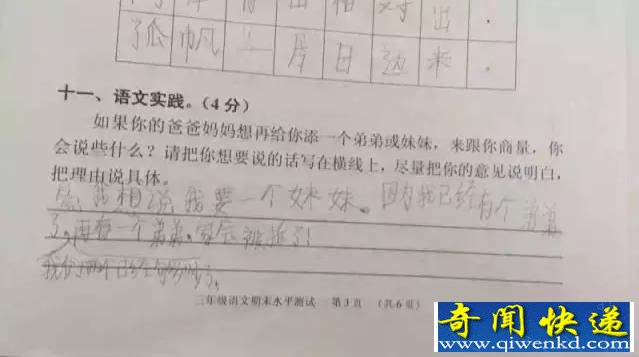 出 相 对 出 .
孤 帆 一 片 日 边 来 .
十一、语文实践。(4分)
如果你的爸爸妈妈想再给你添一个弟弟或妹妹，来跟你商量，你
会说些什么？请把你想要说的话写在横线上，尽量把你的意见说明白，
把理由说具体。
答：我相说我要一个妹妹。因为我已经有个弟弟
了。再有一个弟弟，家会被拆了！
我们两个已经够
三年级语文期末水平测试 第3页 （共6页）
奇闻快递
www.qiwenkd.com